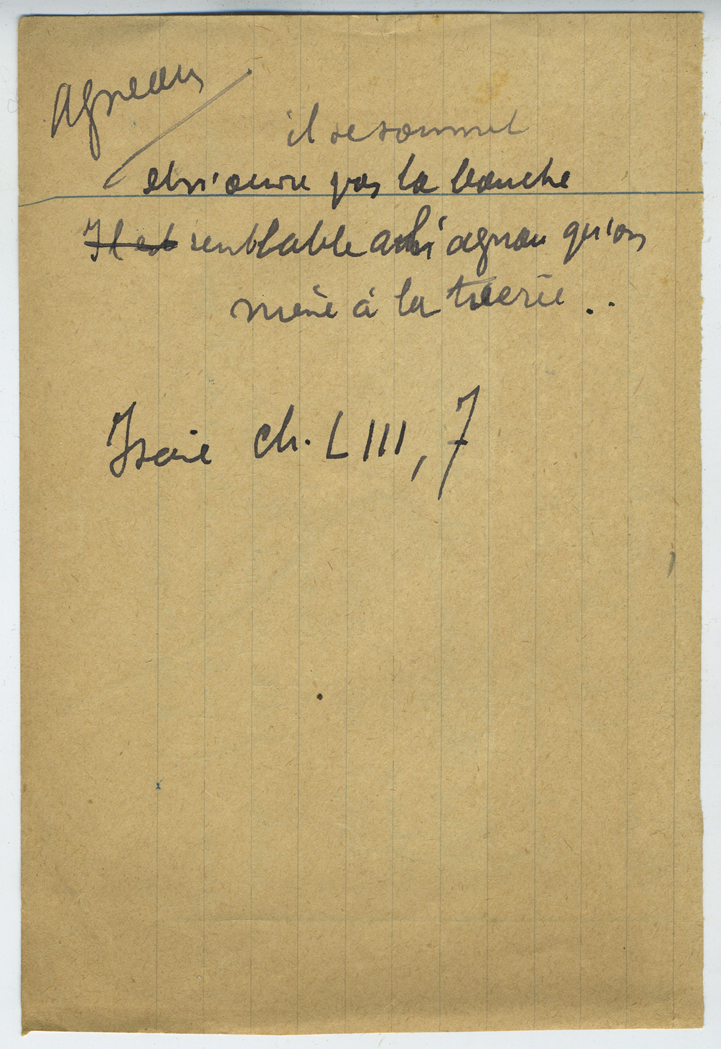 Agneau
il se soumet
et n'ouvre pas la bouche
Il est semblable à l'agneau qu'on
mène à la tuerie..
Isaïe ch. LIII, 7